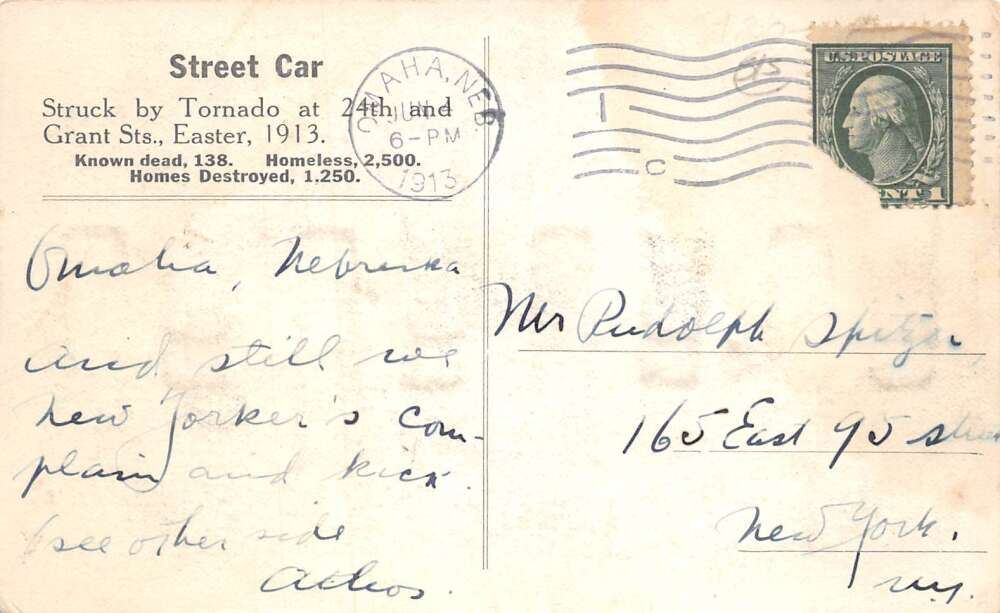 Street Car
Struck by Tornado at 24th and
Grant Sts., Easter, 1913.
Known dead, 138. Homeless, 2,500.
Homes Destroyed, 1.250.
OMAHA, NEB.
JUN
6-PM
1913
1
C
U.S. POSTAGE
ENT 1
Omaha, Nebraska
and still we
New Yorker's com-
plain and kick.
(see other side
Athos.
Mr Rudolph Spitzer
165 East 95 street
New York.
N.Y.